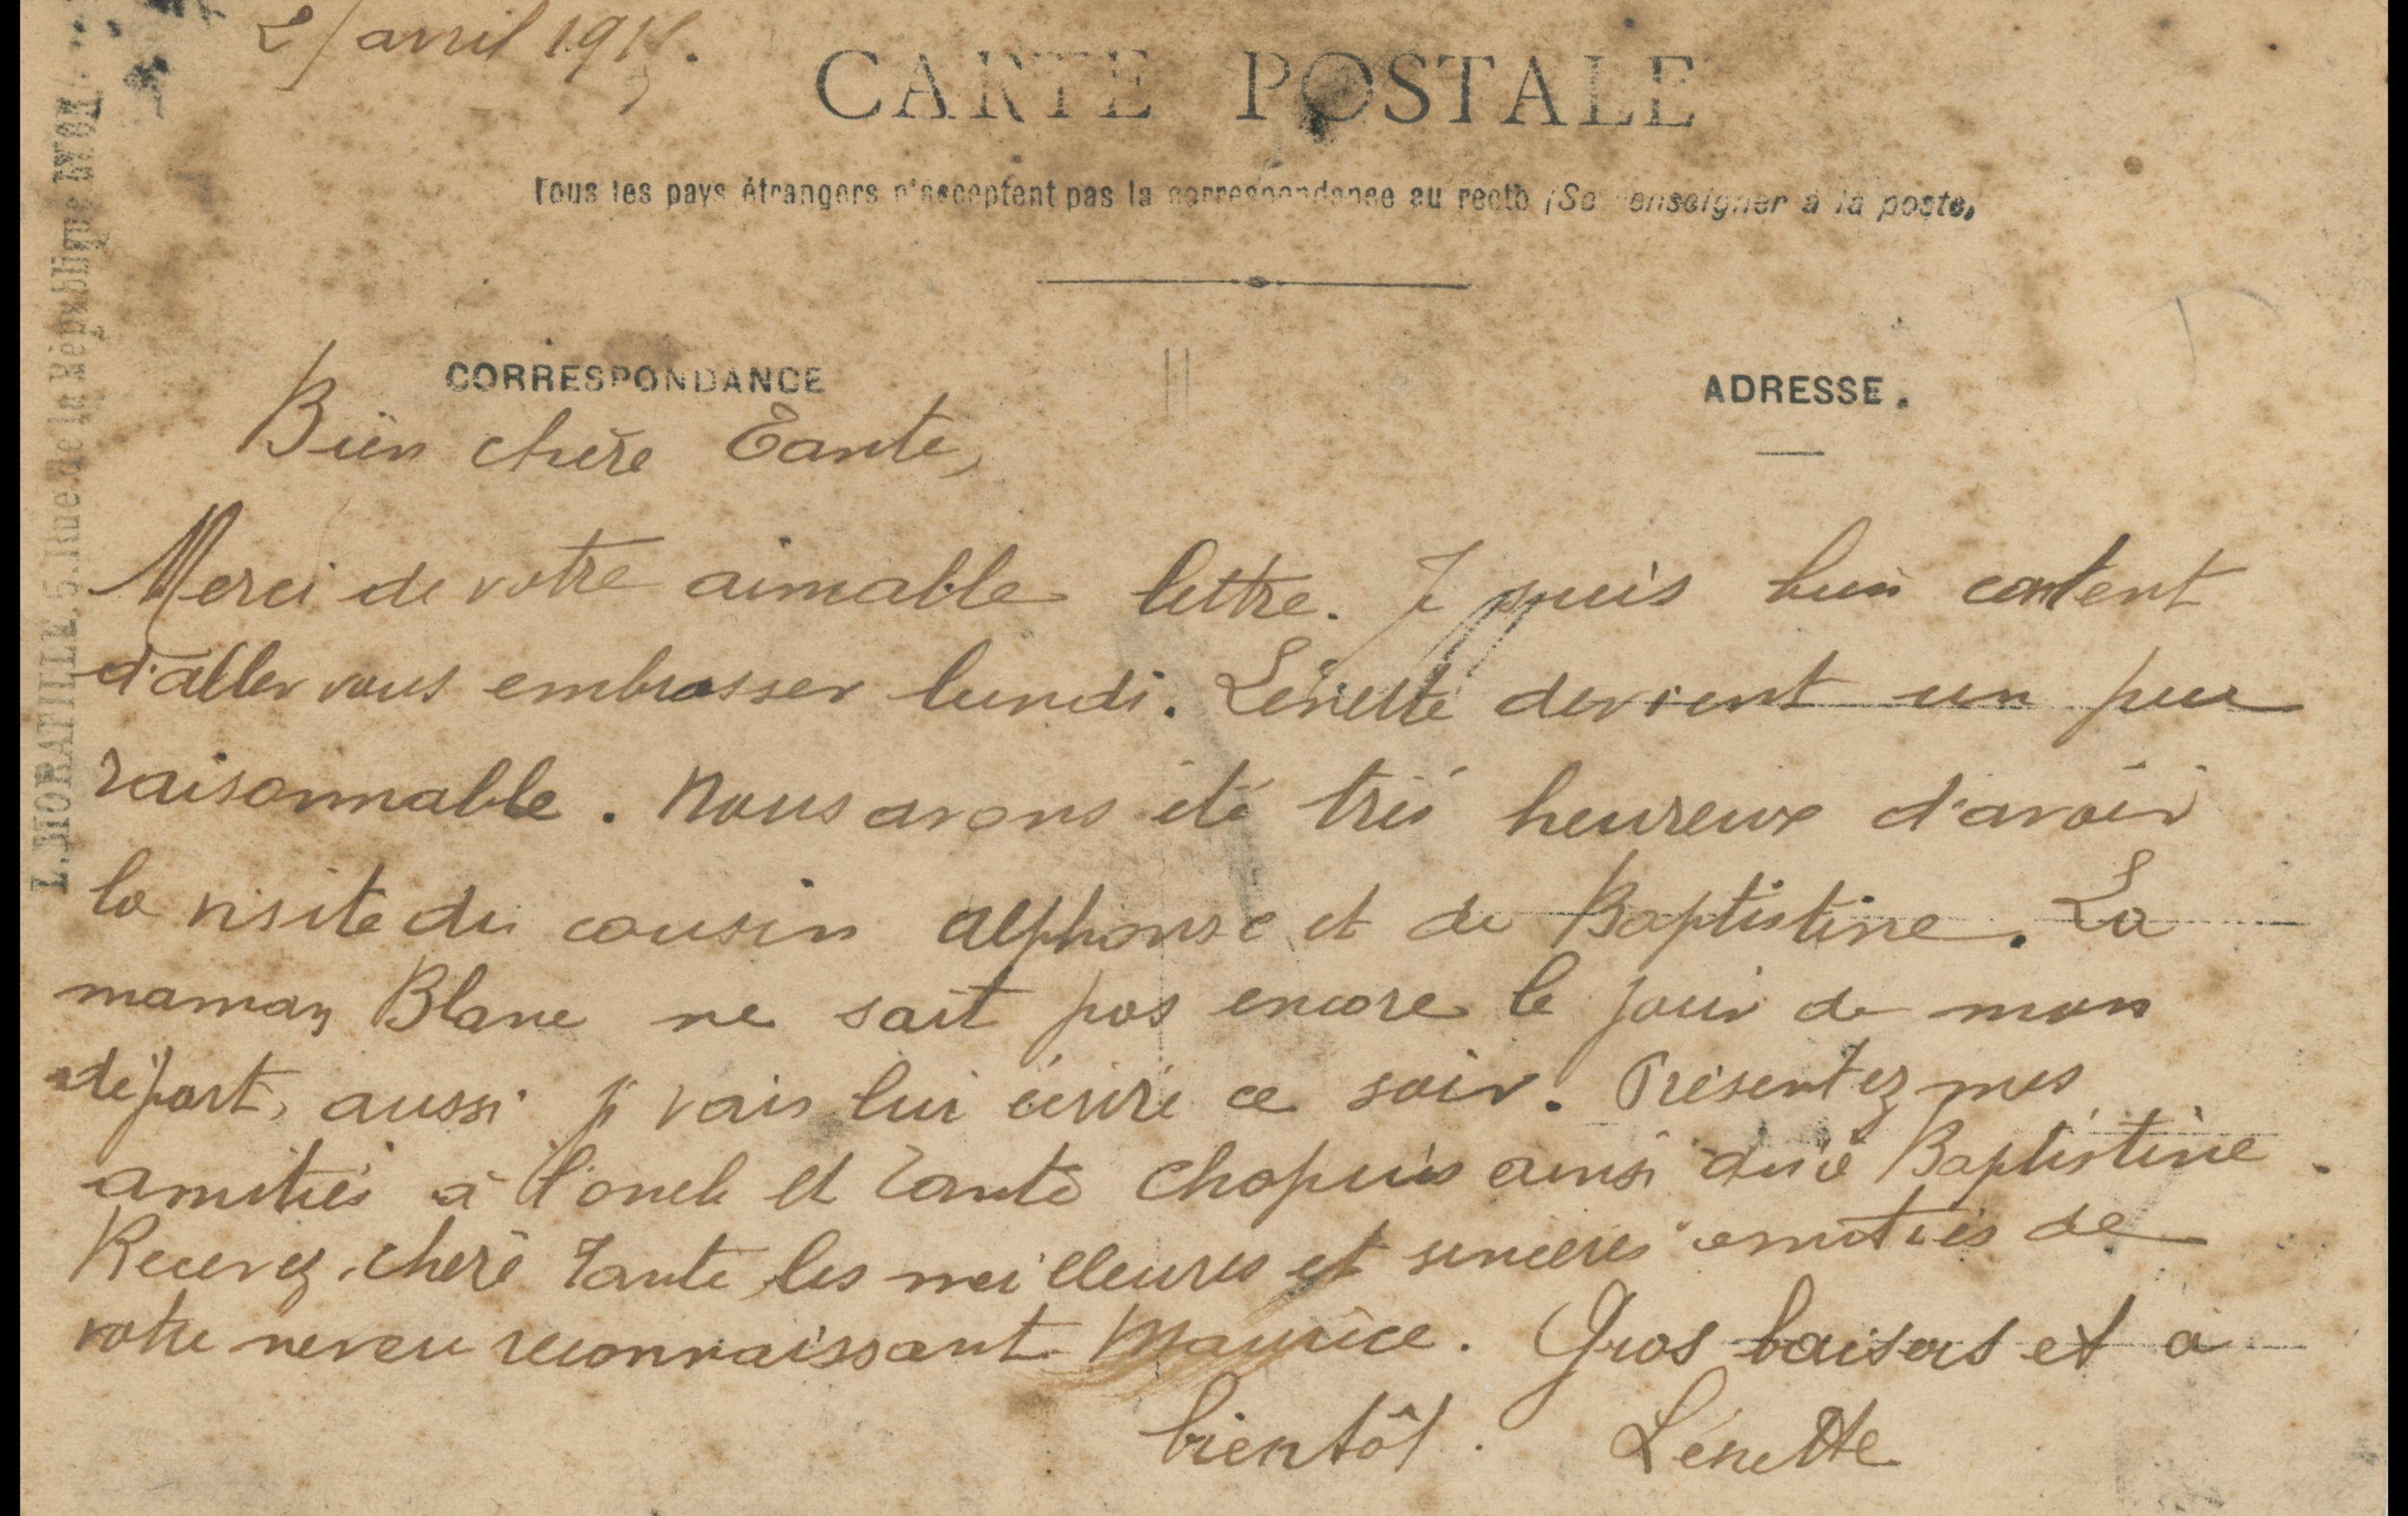 avril 191
CARTE POSTALE
Tous les pays étrangers n'acceptent pas la correspondance au recto (Se renseigner à la poste,
CORRESPONDANCE
ADRESSE.
Bien chère Tante,
Merci de votre aimable lettre. Je suis bien content
d'aller vous embrasser lundi. Lénette devient un peu
raisonnable. Nous avons été très heureux d'avoir
la visite du cousin Alphonse et de Baptistine. La
maman Blanc ne sait pas encore le jour de mon
départ, aussi je vais lui écrire ce soir. Présentez mes
amitiés à l'oncle et tante Chapuis ainsi qu'à Baptistine.
Recevez, chère Tante les meilleures et sincères amitiés de
votre neveu reconnaissant Maurice. Gros baisers et à
bientôt. Lénette
L. MORATILLE, 5, Rue de la République LYON